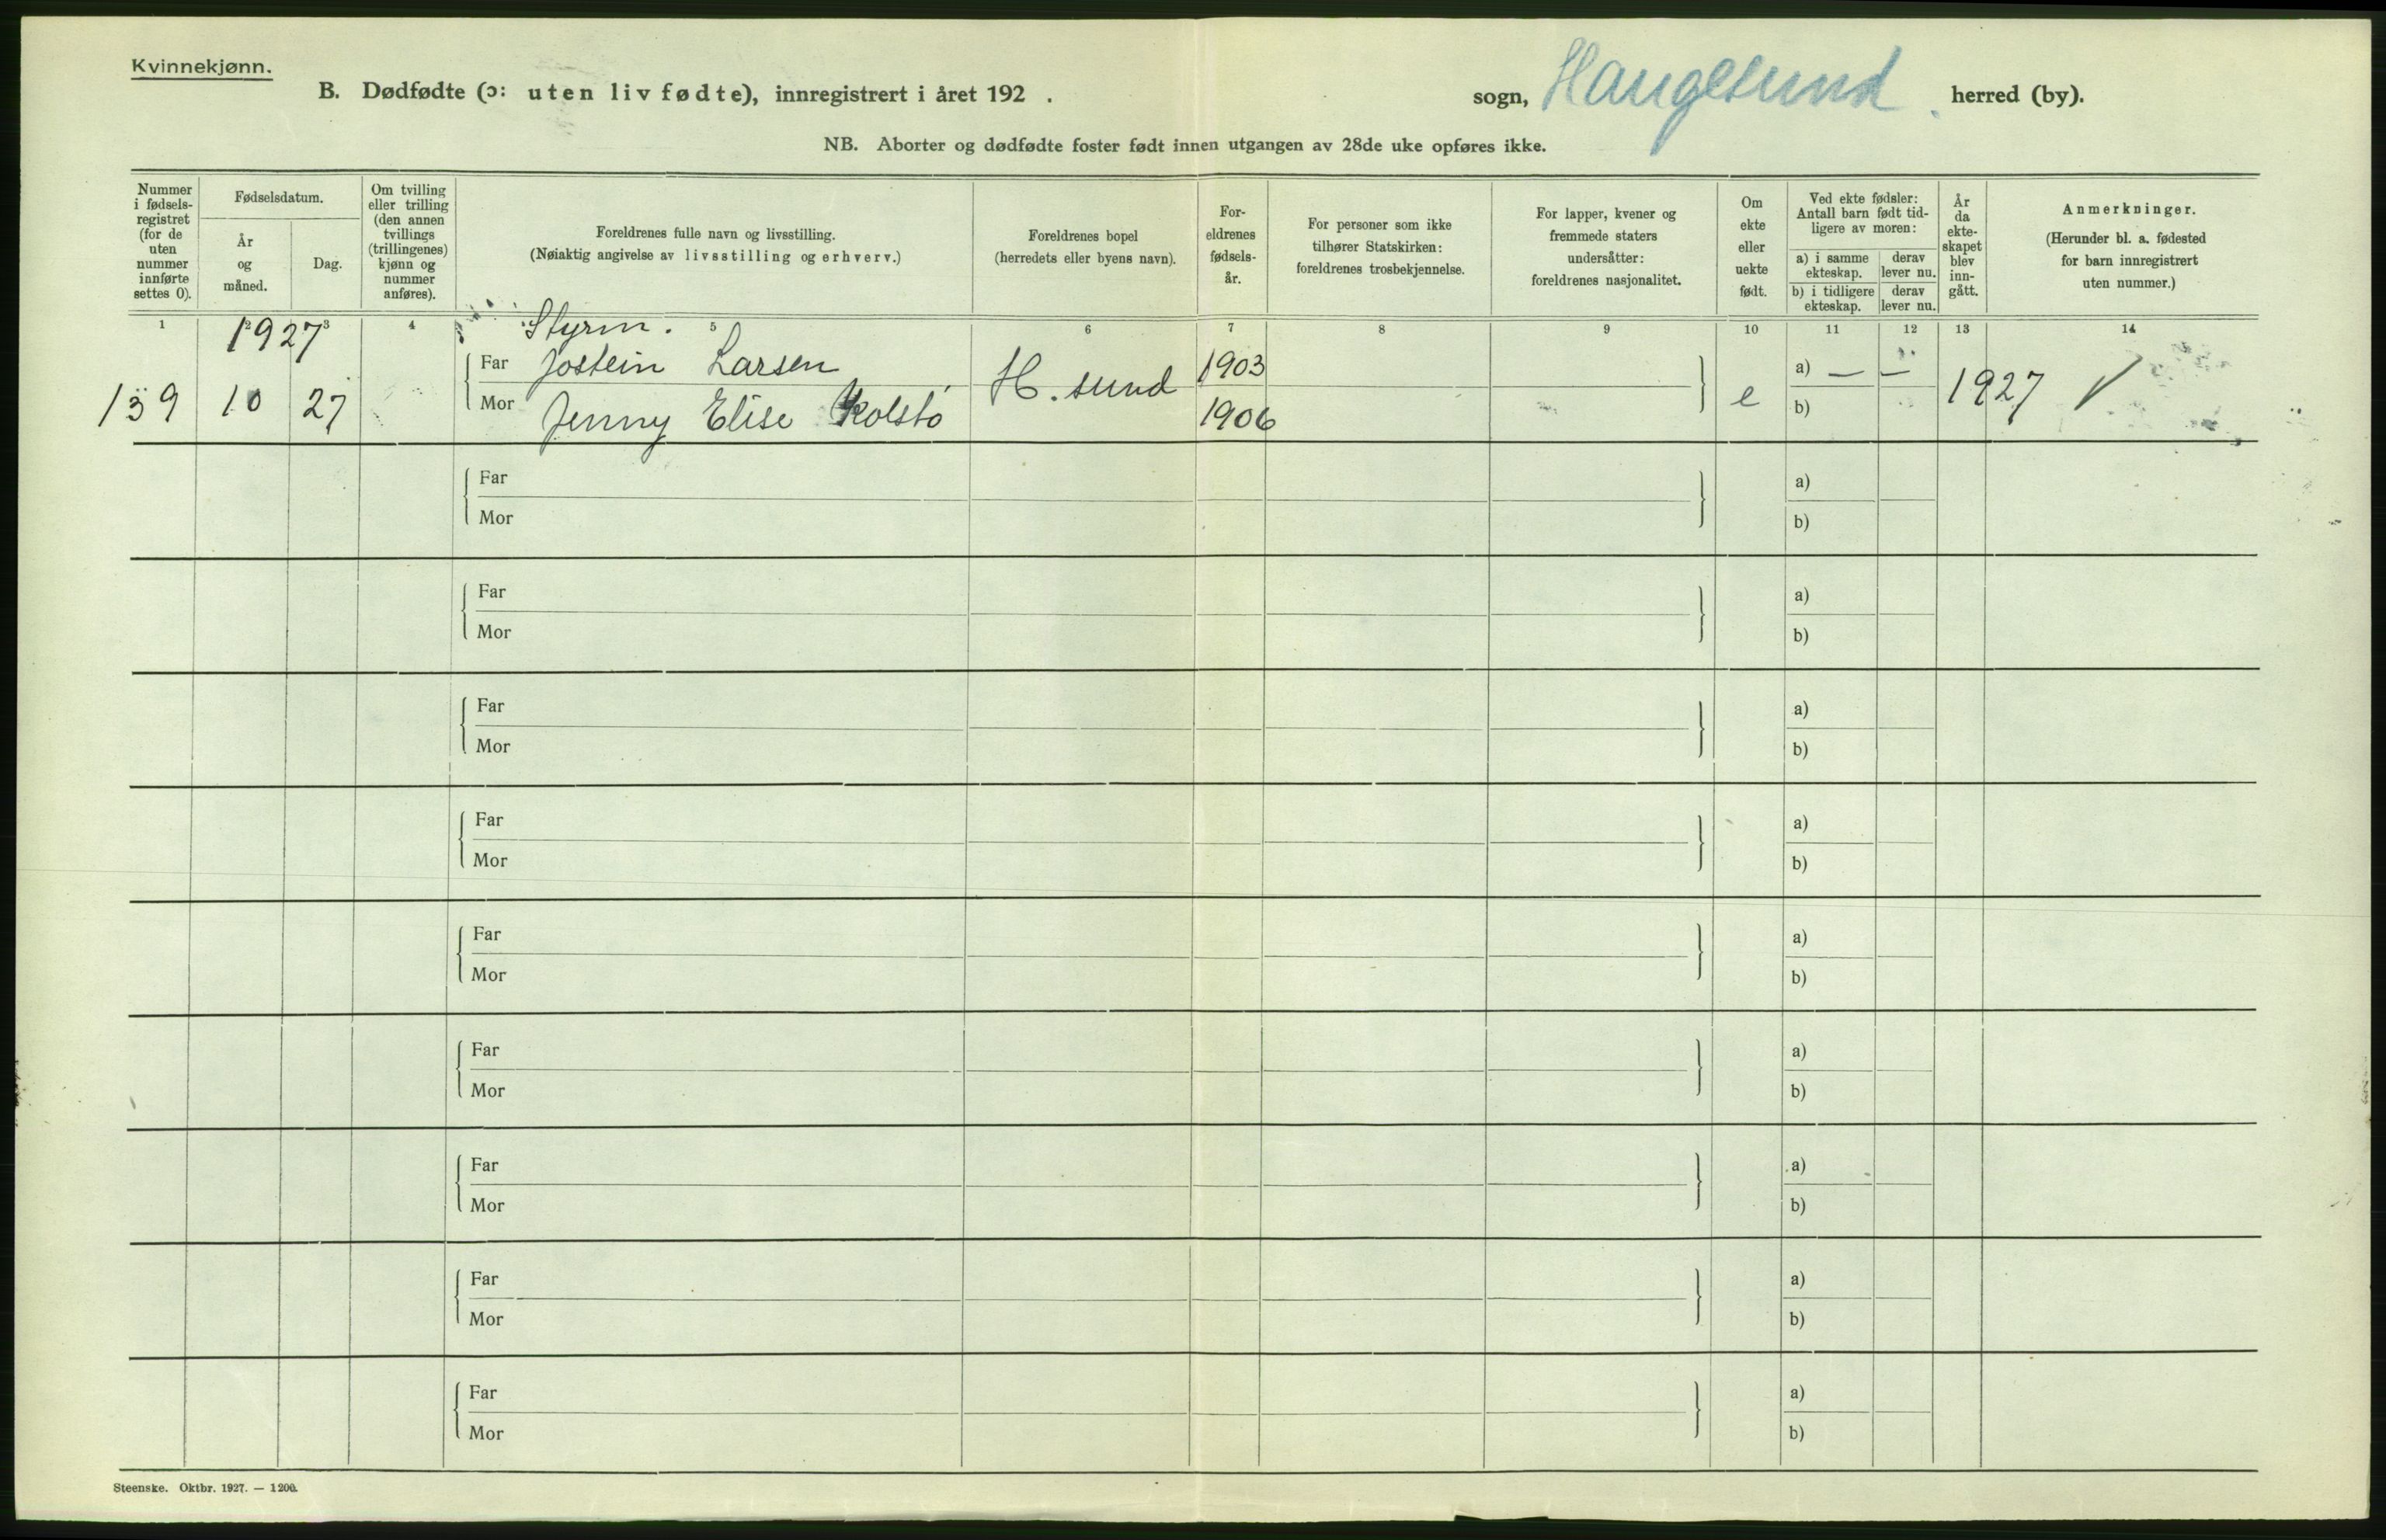 Kvinnekjønn.
B. Dødfødte (ɔ: uten liv fødte), innregistrert i året 192 .
sogn, Haugesund herred (by).
NB. Aborter og dødfødte foster født innen utgangen av 28de uke opføres ikke.
Nummer i fødsels- registret (for de uten nummer innførte settes 0).
Fødselsdatum.
År og måned.
Dag.
Om tvilling eller trilling (den annen tvillings (trillingenes) kjønn og nummer anføres).
Foreldrenes fulle navn og livsstilling.
(Nøiaktig angivelse av livsstilling og erhverv.)
Foreldrenes bopel
(herredets eller byens navn).
For- eldrenes fødsels- år.
For personer som ikke tilhører Statskirken: foreldrenes trosbekjennelse.
For lapper, kvener og fremmede staters undersåtter: foreldrenes nasjonalitet.
Om ekte eller uekte født.
Ved ekte fødsler: Antall barn født tid- ligere av moren:
a) i samme ekteskap.
derav lever nu.
b) i tidligere ekteskap.
derav lever nu.
År da ekte- skapet blev inn- gått.
Anmerkninger.
(Herunder bl. a. fødested for barn innregistrert uten nummer.)
1 2 3 4 5 6 7 8 9 10 11 12 13 14
1927 Styrm.
Far Jostein Larsen 1903 a) — —
139 10 27 H.sund e 1927 ✓
Mor Jenny Elise Kolstø 1906 b)
Far a)
Mor b)
Far a)
Mor b)
Far a)
Mor b)
Far a)
Mor b)
Far a)
Mor b)
Far a)
Mor b)
Far a)
Mor b)
Far a)
Mor b)
Far a)
Mor b)
Steenske. Oktbr. 1927. — 1200.